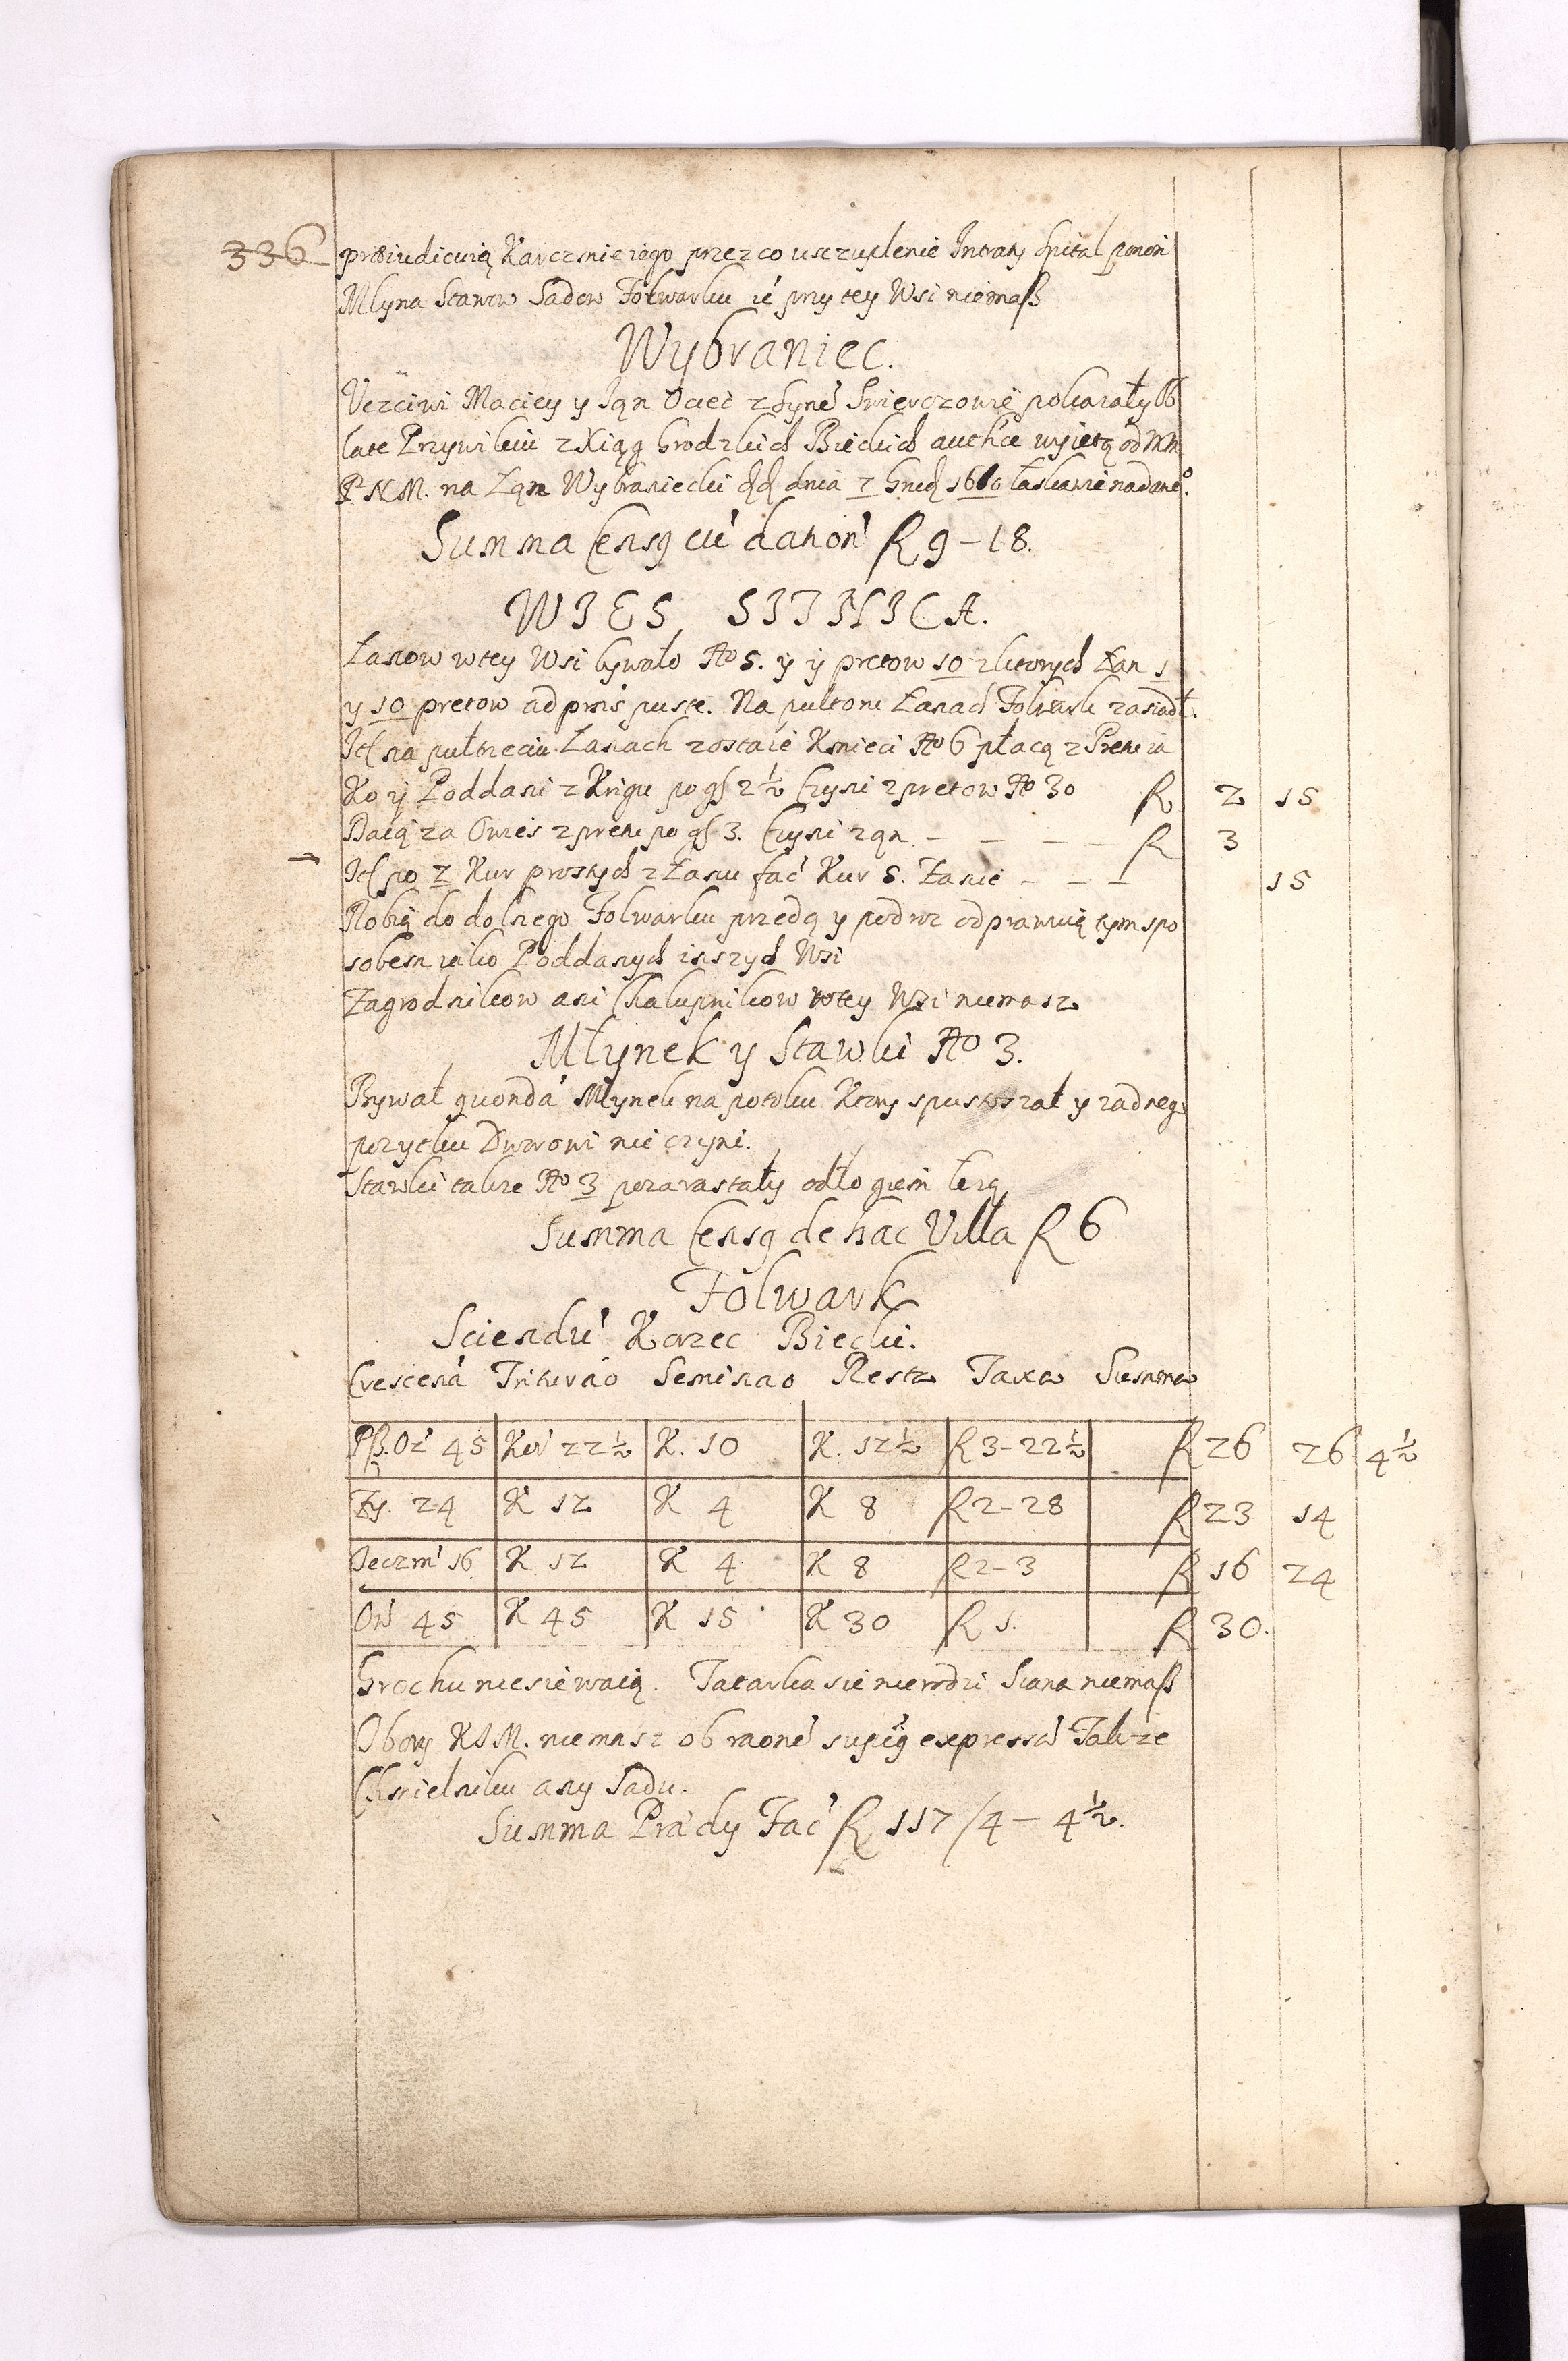 336 præiudicuią Karczmie iego przez co uszczuplenie Intraty spital ponosi
Młyna Stawu Sadow Folwarku ie przy tey Wsi niemaß
Wybraniec.
Uczciwi Maciey y Ian Ociec z Syne Swierczowie pokazały Ob
late Przywileiu z Xiąg Grodzkich Bieckich auth'ce wyięta od
P N M. na Łan Wybraniecki dd dnia 7 1660 łaskawie nadane°.
Summa Censq cu' danon' R 9 – 18.
WIES SITNICA.
Łanow w tey Wsi bywało No 5. y y pretow 10 z ktorych Łan 1
y 10 pretow ad pns puste. Na pułtoru Łanach Folwark zasiadł.
It na pułtrzeciu Łanach zostaie Kmieci No 6 płacą z Preta ia
Ko y Poddani z Krigu po gs 2½ Czyni z pretow No 30 R 2 15
Daią za Owies z preta po gs 3. Czyni zqn – – – – R 3
It po 2 Kur prostych z Łanu fac' Kur 5. Łanie – – – 15
Robią do dolnego Folwarku przedą y podroz odprawuią tym spo
sobem iako Poddanych inszych Wsi
Zagrodnikow ani Chałupnikow w tey Wsi niemasz
Młynek y Stawki No 3.
Bywał quonda' Młynek na potoku Ktory spustoszał y zadneg°
pozytku Dworowi nie czyni.
Stawki takze No 3 pozarastały odłogiem lezą
Summa Censq de hac Villa R 6
Folwark
Sciendu' Korzec Biecki.
Crescena' Triturao Seminao Resta Taxa Summa
Pß. Oz' 45 Kor' 22½ K. 10 K. 12½ R 3–22½ R 26 26 4½
Zy. 24 K 12 K 4 K 8 R 2–28 R 23 14
Ieczm' 16 K 12 K 4 K 8 R 2–3 R 16 24
Ow' 45 K 45 K 15 K 30 R 1. R 30.
Grochu nie siewaią. Tatarka sie nie rodzi Siana niemaß
Obory K I M. niemasz ob raone' supiq expressa' Takze
Chmielniku any Sadu.
Summa Prady Fac' R 117/4 – 4½.